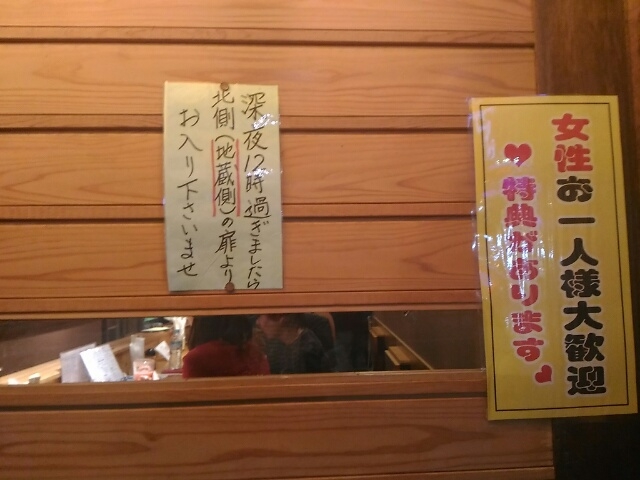 深夜12時過ぎましたら
北側(地蔵側)の扉より
お入り下さいませ
女性お一人様大歓迎
♥特典があります♥